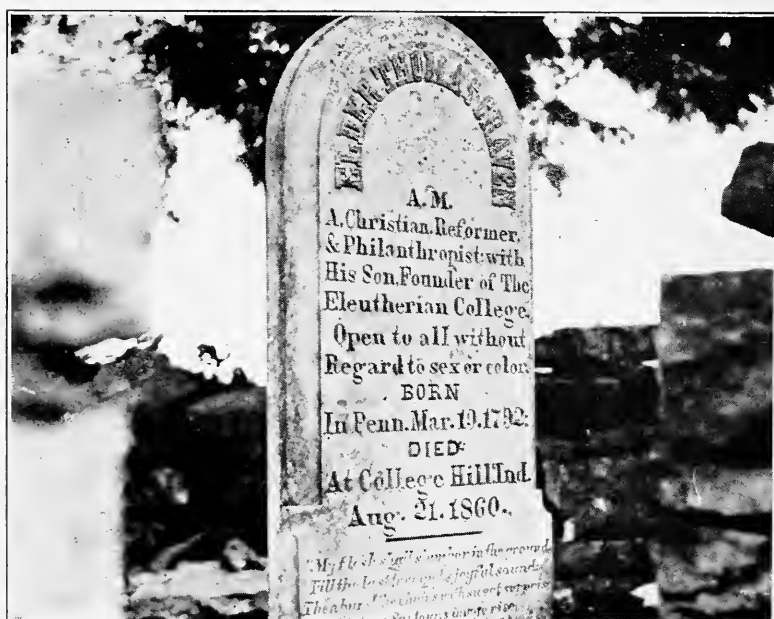 ELDER THOMAS CRAVEN
A.M.
A. Christian. Reformer,
& Philanthropist: with
His Son. Founder of The
Eleutherian College.
Open to all without
Regard to sex or color.
BORN
In Penn. Mar. 19. 1792:
DIED:
At College Hill Ind.
Aug. 21. 1860.
My flesh shall slumber in the ground
Till the last trumpet's joyful sound
Then burst the chains with sweet surprise